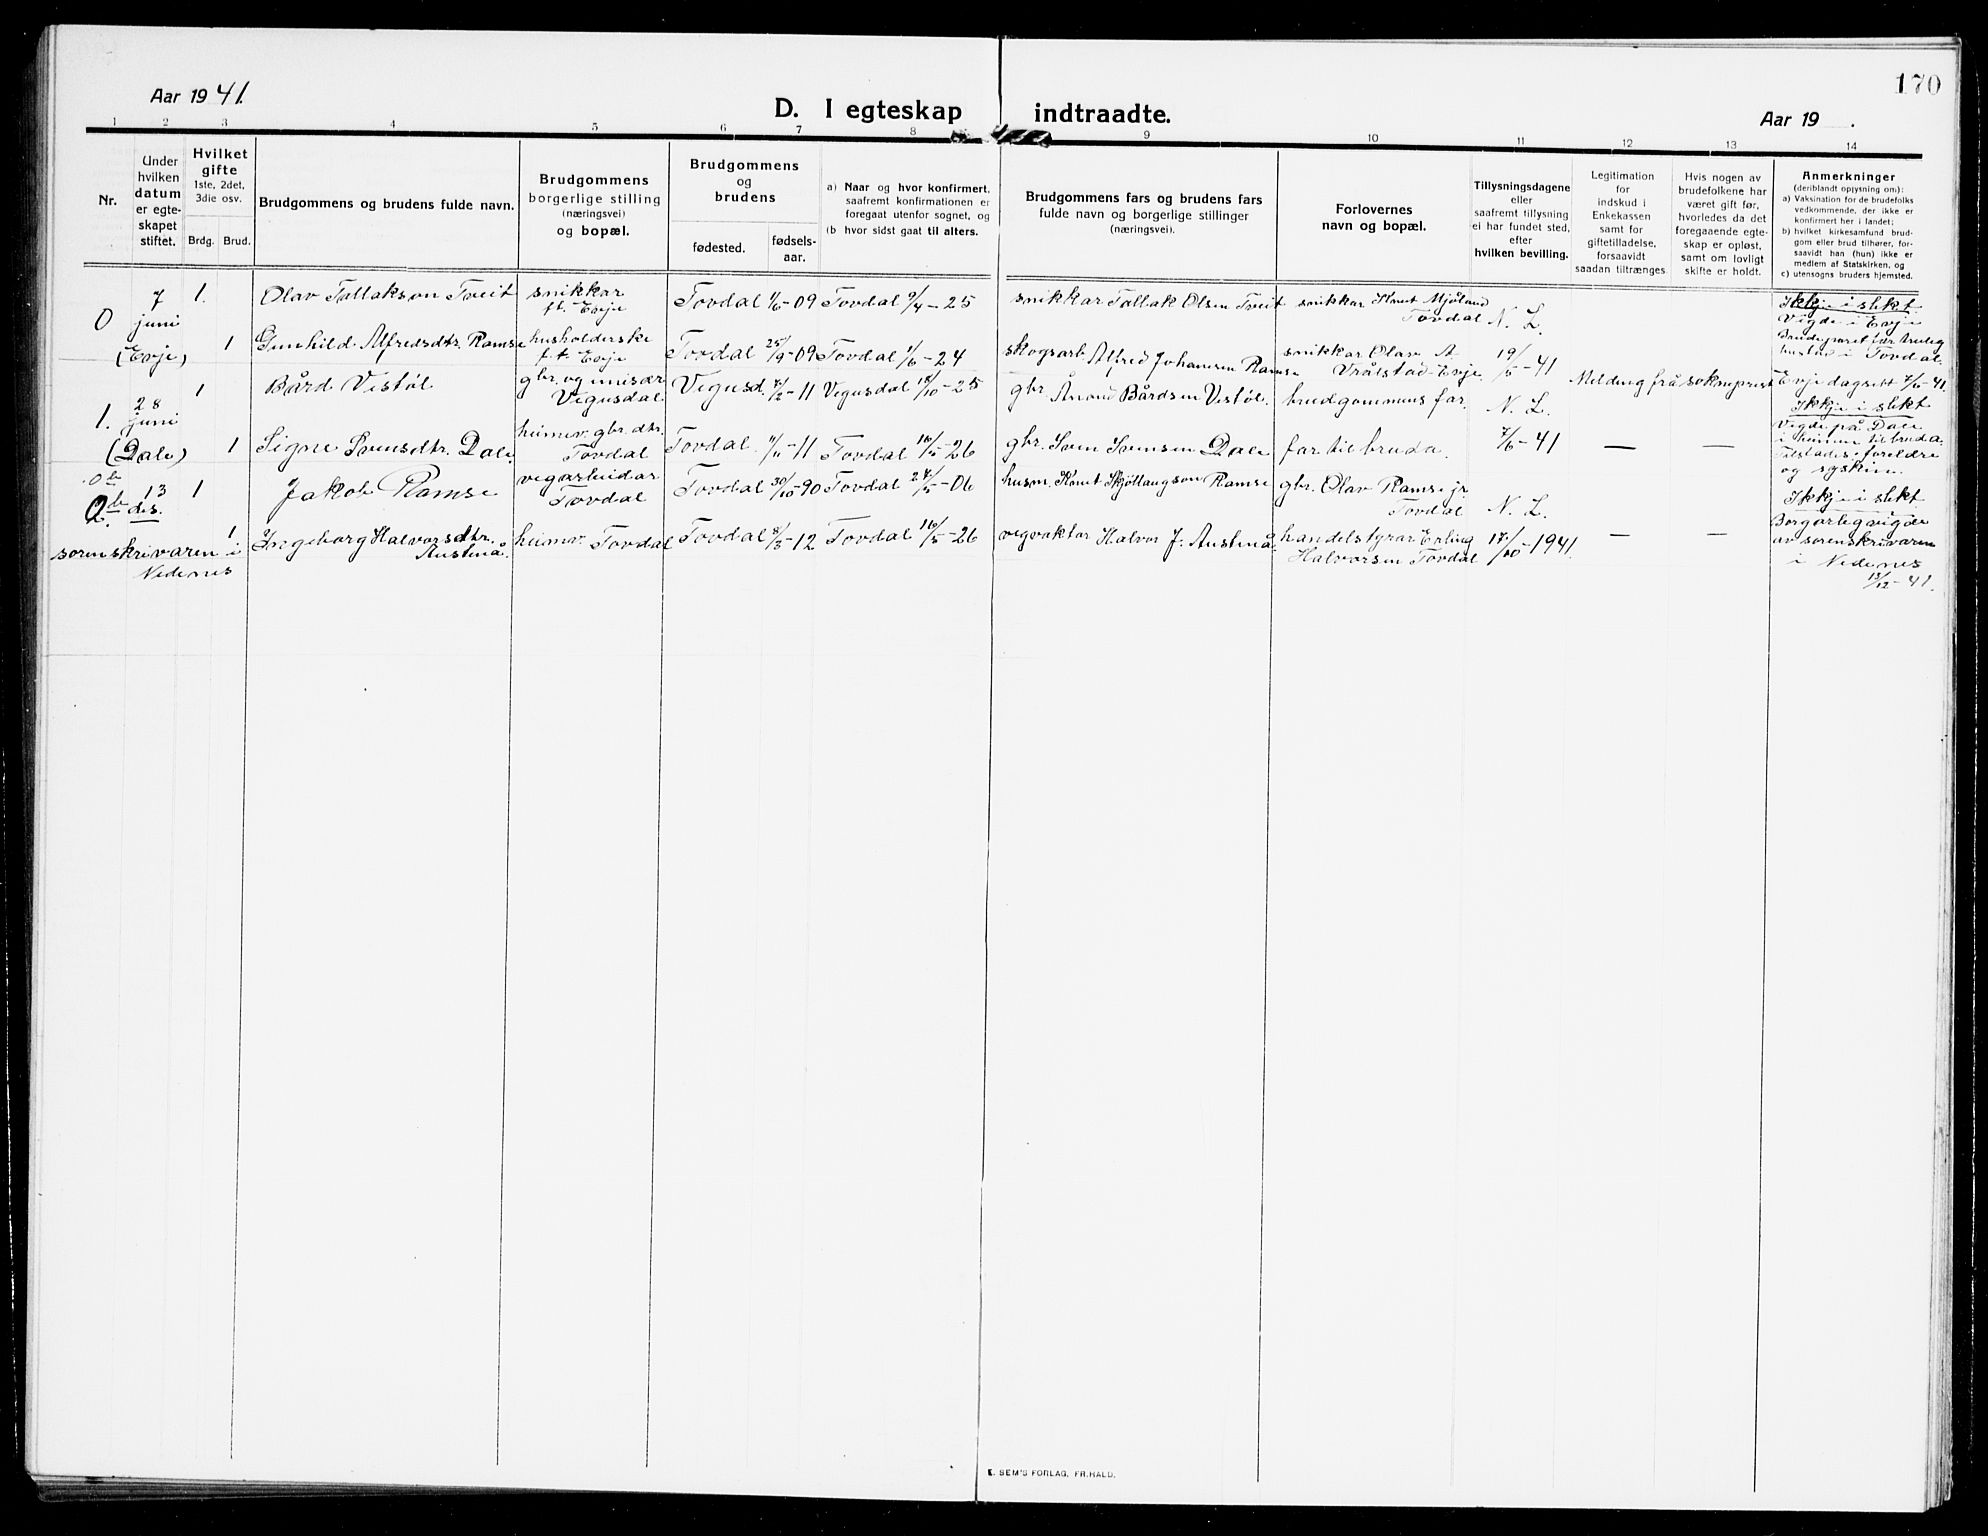 170
Aar 1941.
D. I egteskap indtraadte.
Aar 19 .
1 2 3 4 5 6 7 8 9 10 11 12 13 14
Nr.
Under
hvilken
datum
er egte-
skapet
stiftet.
Hvilket
gifte
1ste, 2det,
3die osv.
Brdg. Brud.
Brudgommens og brudens fulde navn.
Brudgommens
borgerlige stilling
(næringsvei)
og bopæl.
Brudgommens
og
brudens
fødested.
fødsels-
aar.
a) Naar og hvor konfirmert,
saafremt konfirmationen er
foregaat utenfor sognet, og
(b hvor sidst gaat til alters.
Brudgommens fars og brudens fars
fulde navn og borgerlige stillinger
(næringsvei).
Forlovernes
navn og bopæl.
Tillysningsdagene
eller
saafremt tillysning
ei har fundet sted,
efter
hvilken bevilling.
Legitimation
for
indskud i
Enkekassen
samt for
giftetilladelse,
forsaavidt
saadan tiltrænges.
Hvis nogen av
brudefolkene har
været gift før,
hvorledes da det
foregaaende egte-
skap er opløst,
samt om lovligt
skifte er holdt.
Anmerkninger
(deriblandt opysning om):
a) Vaksination for de brudefolks
vedkommende, der ikke er
konfirmert her i landet;
b) hvilket kirkesamfund brud-
gom eller brud tilhører, for-
saavidt han (hun) ikke er
medlem af Statskirken, og
c) utensogns bruders hjemsted.
0
7
juni
(Evje)
1.
Olav Tallakson Tveit
snikkar
ft. Evje
Tovdal 1/6-09 Tovdal 9/4-25
snikkar Tallak Olsen Tveit
snikkar Knut Mjåland
Tovdal
N. L.
Ikkje i slekt
Vigde i Evje
1
Gunhild Alfredsdtr. Ramse
husholderske
f.t Evje
Tovdal 25/9-09 Tovdal 1/6-24
skogsarb. Alfred Johansen Ramse
snikkar Olav A.
Vråtstad-Evje
19/5-41
hustad i Tovdal.
Melding frå sokneprest Evje dagsett 7/6-41
1.
28
juni
(Dale)
1
Bård Vestøl
gbr. og
Vegusdal.
Vegusd. 7/2-11 Vegusdal 18/10-25
gbr. Ånund Bårdsen Vestøl.
brudgommens far.
N. L.
Ikkje i slekt
Vigde på Dale
i heimen til bruda.
1
Signe Svensdtr. Dale.
heimev. gbr. dtr.
Tovdal
Tovdal. 11/11-11 Tovdal 16/5-26
gbr. Sven Svensen Dale
far til bruda.
7/6-41
—
—
Tilstades: foreldre
og syskin.
13
des.
1
Jakob Ramse
vegarbeidar
Tovdal
Tovdal 30/10-90 Tovdal 27/5-06
husm. Knut Skjöttaugson Ramse
gbr. Olav Ramse jr.
Tovdal
N. L.
Ikkje i slekt
sorenskrivaren i
Nedenes
1
Ingeborg Halvorsdtr.
Austenå.
heimev. Tovdal
Tovdal 8/3-12 Tovdal 16/5-26
vegvaktar Halvor J. Austenå
handelstyrar Erling
Halvorsen Tovdal
17/10-1941.
—
—
Borgarleg vigde
av sorenskrivaren
i Nedenes
13/12-41.
E. SEM'S FORLAG, FR.HALD.